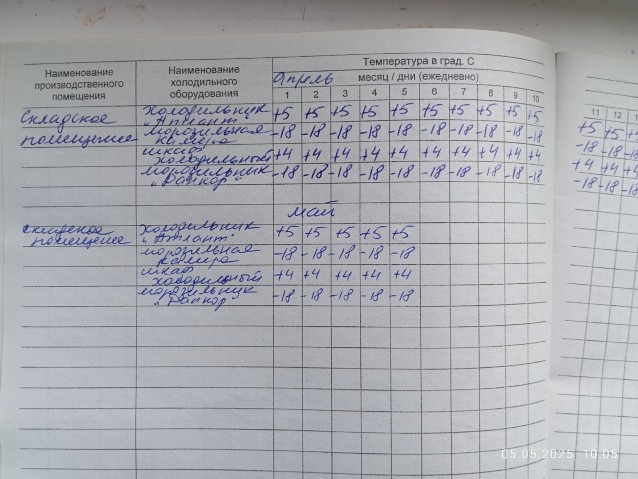 Температура в град. С
Наименование производственного помещения
Наименование холодильного оборудования
Апрель месяц / дни (ежедневно)
1 2 3 4 5 6 7 8 9 10 11 12 13
Складское холодильник +5 +5 +5 +5 +5 +5 +5 +5 +5 +5 +5 +5 +5
"Атлант"
помещение морозильная -18 -18 -18 -18 -18 -18 -18 -18 -18 -18 -18 -18 -18
камера
шкаф +4 +4 +4 +4 +4 +4 +4 +4 +4 +4 +4 +4 +4
холодильный
морозильник -18 -18 -18 -18 -18 -18 -18 -18 -18 -18 -18 -18 -18
май
складское холодильник +5 +5 +5 +5 +5
помещение "Атлант"
морозильная -18 -18 -18 -18 -18
камера
шкаф +4 +4 +4 +4 +4
холодильный
морозильник -18 -18 -18 -18 -18
05.05.2025 10:05